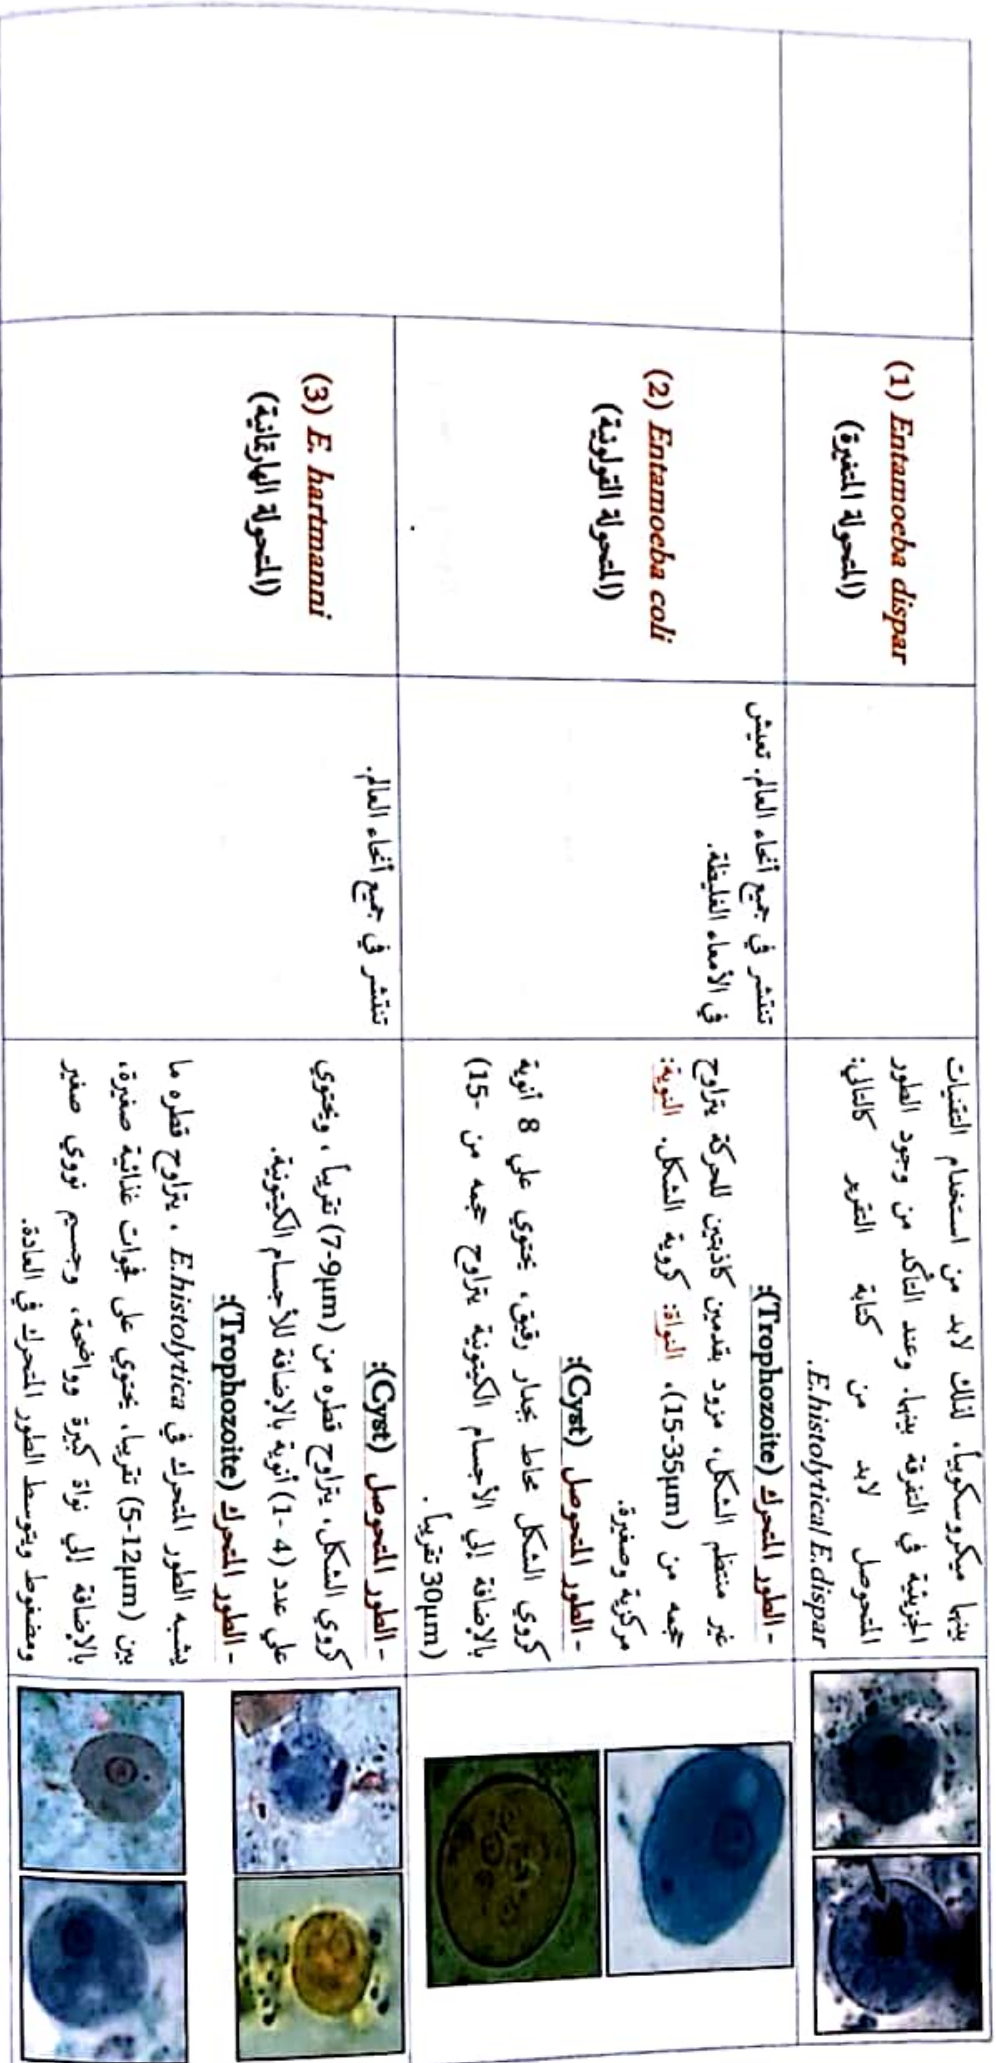 (1) Entamoeba dispar
(المتحولة المتغيرة)
بينها ميكروسكوبياً، لذلك لابد من استخدام التقنيات
الجزيئية في التفرقة بينها. وعند التأكد من وجود الطور
المتحوصل لابد من كتابة التقرير كالتالي:
E.histolytica/ E.dispar.
(2) Entamoeba coli
(المتحولة القولونية)
تنتشر في جميع أنحاء العالم. تعيش
في الأمعاء الغليظة.
- الطور المتحرك (Trophozoite):
غير منتظم الشكل، مزود بقدمين كاذبتين للحركة يتراوح
حجمه من (15-35µm)، النواة: كروية الشكل. النوية:
مركزية وصغيرة.
- الطور المتحوصل (Cyst):
كروي الشكل محاط بجدار رقيق، يحتوي علي 8 أنوية
بالإضافة إلي الأجسام الكيتونية يتراوح حجمه من (15-
30µm) تقريباً.
(3) E. hartmanni
(المتحولة الهارتمانية)
تنتشر في جميع أنحاء العالم.
- الطور المتحوصل (Cyst):
كروي الشكل، يتراوح قطره من (7-9µm) تقريباً ، ويحتوي
علي عدد (1- 4) أنوية بالإضافة للأجسام الكيتونية.
- الطور المتحرك (Trophozoite):
يشبه الطور المتحرك في E.histolytica ، يتراوح قطره ما
بين (5-12µm) تقريبا، يحتوي على فجوات غذائية صغيرة،
بالإضافة إلي نواة كبيرة وواضحة، وجسيم نووي صغير
ومضغوط ويتوسط الطور المتحرك في العادة.